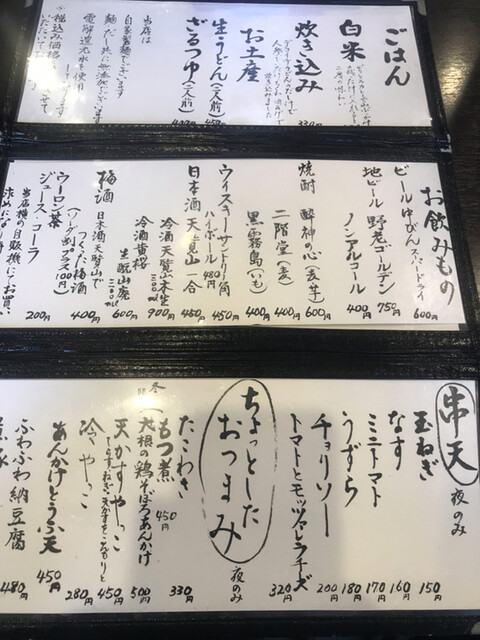 ごはん
白米
炊き込み
330円
お土産
生うどん(一人前)
ざるつゆ(一人前)
当店は
自家製麺でございます
麺だし共に無添加でございます
電解還元水を使用
お飲みもの
ビール中びん スーパードライ
600円
地ビール 野老ゴールデン
750円
ノンアルコール
400円
焼酎 酔神の心(麦芋)
600円
二階堂(麦)
400円
黒霧島(いも)
400円
ウイスキーサントリー角
450円
ハイボール 480円
日本酒 天覧山一合
450円
冷酒天覧山本生
900円
冷酒黄桜
生酛山廃 300ml
600円
梅酒 日本酒天覧山で
つくった梅酒
400円
(ソーダ割プラス100円)
ウーロン茶
ジュース・コーラ
200円
当店横の自販機にてお買い
求めになり
串天 夜のみ
玉ねぎ
150円
なす
160円
ミニトマト
170円
うずら
180円
チョリソー
200円
トマトとモッツァレラチーズ
320円
ちょっとした
おつまみ 夜のみ
たこわさ
330円
もつ煮
450円
大根の鶏そぼろあんかけ
500円
天かすやっこ
450円
冷やっこ
280円
あんかけとうふ天
450円
ふわふわ納豆腐
480円